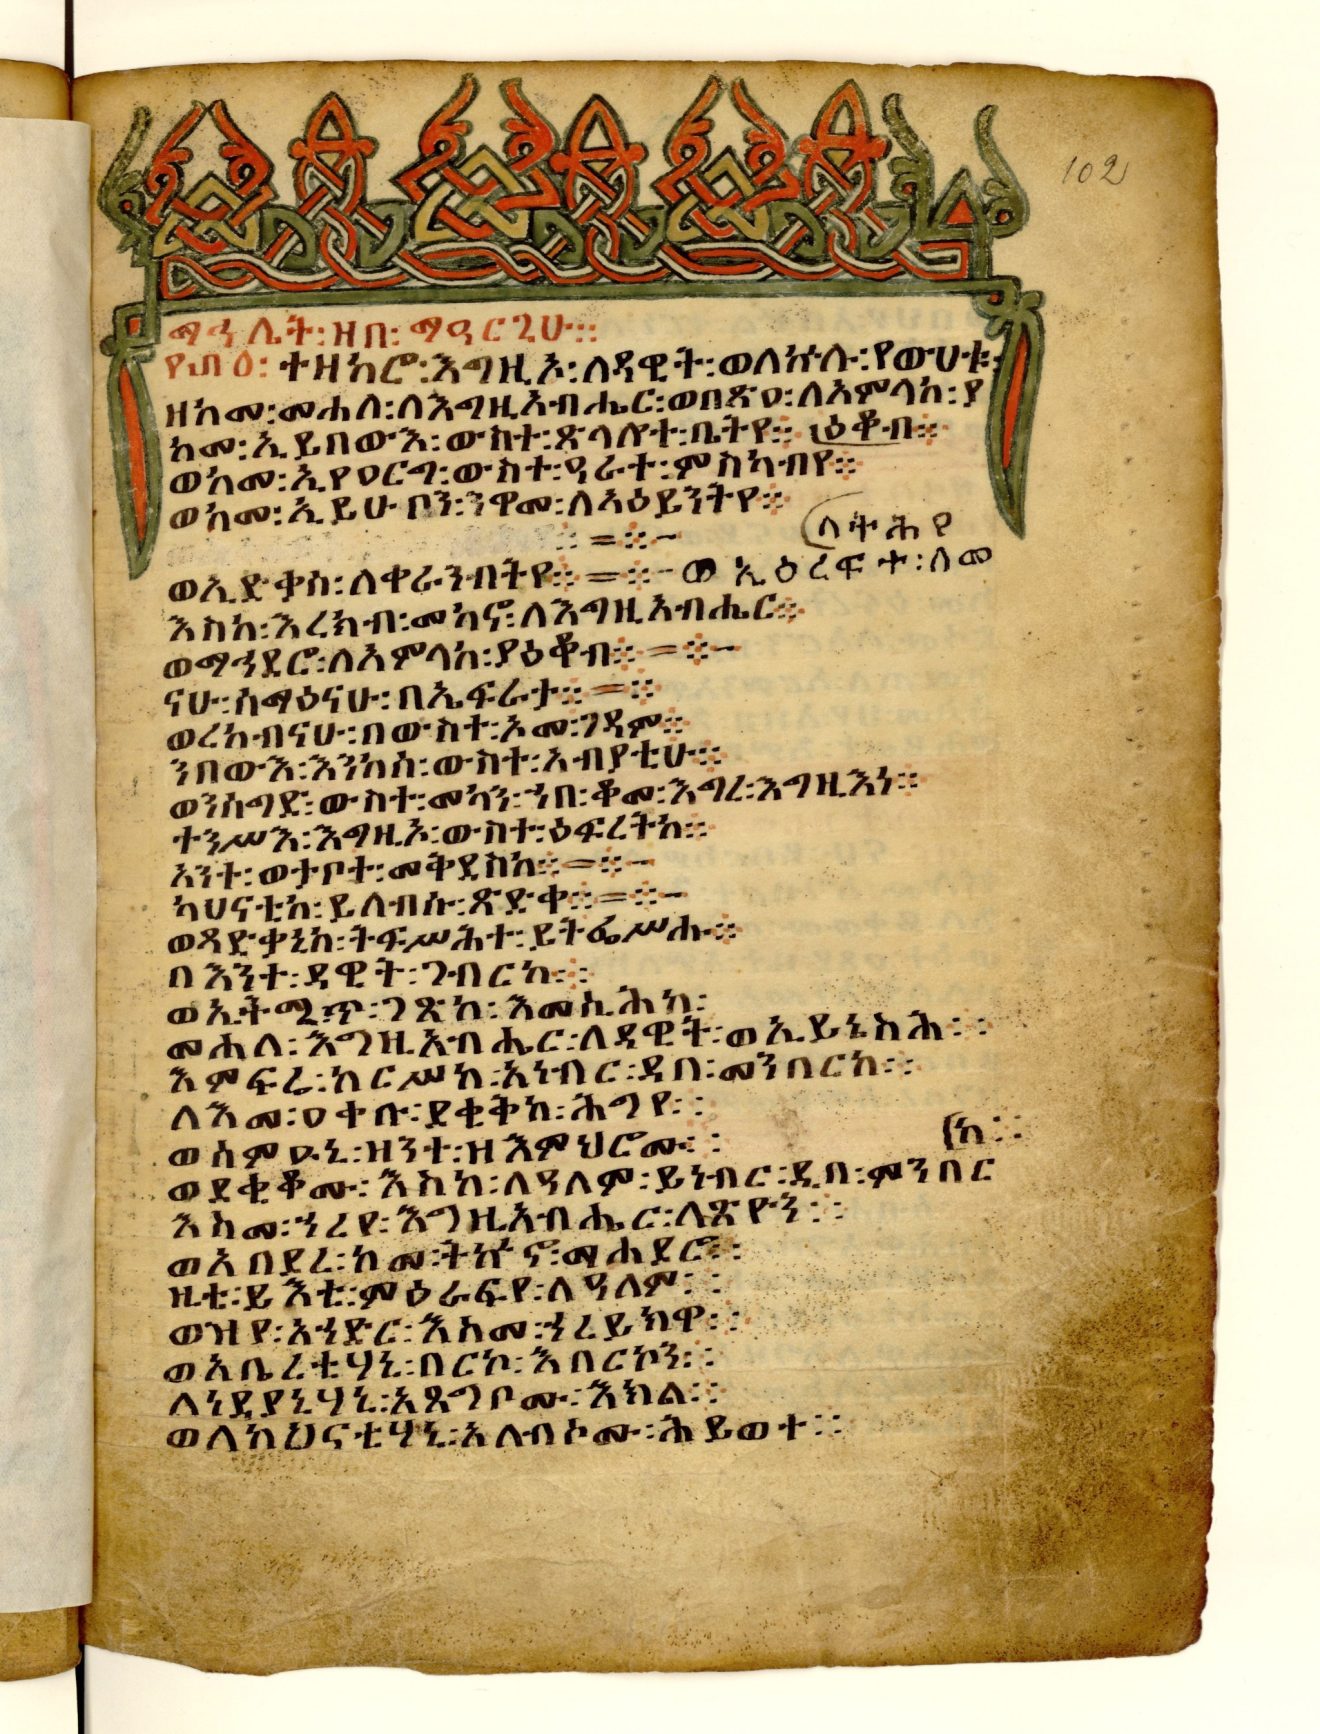 102
ማኅሌት፡ዘበ፡ማዓርጊሁ።
ተዘከሮ፡እግዚኦ፡ለዳዊት፡ወለኵሉ፡የውሀቱ፡
ዘከመ፡መሐለ፡ለእግዚአብሔር፡ወበጽዐ፡ለአምላከ፡ያ
ከመ፡ኢይበውእ፡ውስተ፡ጽላሎተ፡ቤትየ። ዕቆብ።
ወከመ፡ኢየዐርግ፡ውስተ፡ዓራተ፡ምስካብየ።
ወከመ፡ኢይሁቦን፡ንዋመ፡ለአዕይንትየ።
ላትሕየ
ወኢድቃስ፡ለቀራንብትየ። ወኢዕረፍተ፡ለመ
እስከ፡እረክብ፡መካኖ፡ለእግዚአብሔር።
ወማኅደሮ፡ለአምላከ፡ያዕቆብ።
ናሁ፡ሰማዕናሁ፡በኤፍራታ።
ወረከብናሁ፡በውስተ፡ኦመ፡ገዳም።
ንበውእ፡እንከሰ፡ውስተ፡አብያቲሁ።
ወንሰግድ፡ውስተ፡መካን፡ኀበ፡ቆመ፡እግረ፡እግዚእነ።
ተንሥእ፡እግዚኦ፡ውስተ፡ዕፍረትከ።
አንተ፡ወታቦተ፡መቅደስከ።
ካህናቲከ፡ይለብሱ፡ጽድቀ።
ወጻድቃኒከ፡ትፍሥሕተ፡ይትፌሥሑ።
በእንተ፡ዳዊት፡ገብርከ።
ወኢትሚጥ፡ገጽከ፡እመሲሕከ፡
መሐለ፡እግዚአብሔር፡ለዳዊት፡ወኢይኔስሕ።
እምፍሬ፡ከርሥከ፡አነብር፡ዲበ፡መንበርከ።
ለእመ፡ዐቀቡ፡ደቂቅከ፡ሕግየ።
ወስምዑኒ፡ዘንተ፡ዘእምህሮሙ።
ከ።
ወደቂቆሙ፡እስከ፡ለዓለም፡ይነብር፡ዲበ፡ምንበር
እስመ፡ኀረየ፡እግዚአብሔር፡ለጽዮን።
ወአበደረ፡ከመ፡ትኵኖ፡ማሕደሮ።
ዛቲ፡ይእቲ፡ምዕራፍየ፡ለዓለም።
ወዝየ፡አኀድር፡እስመ፡ኀረይክዋ።
ወአቤረቲሃኒ፡በርኮ፡እበርኮን።
ለነዳያኒሃኒ፡አጸግቦሙ፡እክለ።
ወለከህናቲሃኒ፡አለብሶሙ፡ሕይወተ።